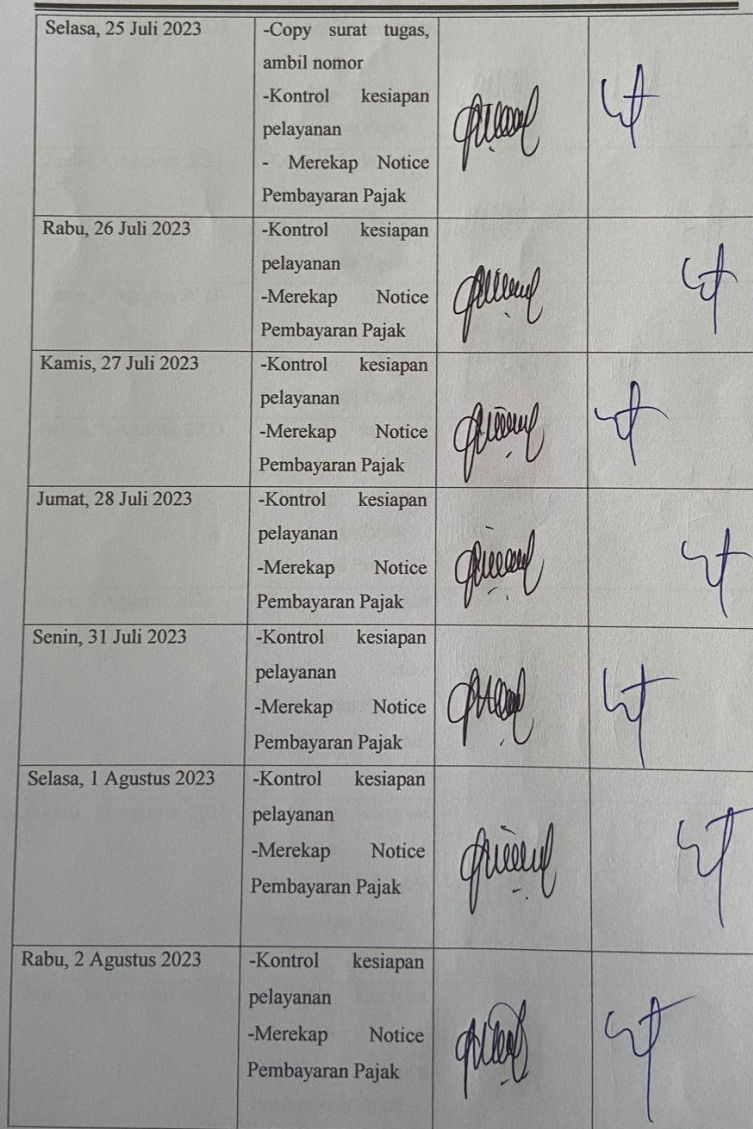 Selasa, 25 Juli 2023
-Copy surat tugas,
ambil nomor
-Kontrol kesiapan
pelayanan
- Merekap Notice
Pembayaran Pajak
Rabu, 26 Juli 2023
-Kontrol kesiapan
pelayanan
-Merekap Notice
Pembayaran Pajak
Kamis, 27 Juli 2023
-Kontrol kesiapan
pelayanan
-Merekap Notice
Pembayaran Pajak
Jumat, 28 Juli 2023
-Kontrol kesiapan
pelayanan
-Merekap Notice
Pembayaran Pajak
Senin, 31 Juli 2023
-Kontrol kesiapan
pelayanan
-Merekap Notice
Pembayaran Pajak
Selasa, 1 Agustus 2023
-Kontrol kesiapan
pelayanan
-Merekap Notice
Pembayaran Pajak
Rabu, 2 Agustus 2023
-Kontrol kesiapan
pelayanan
-Merekap Notice
Pembayaran Pajak